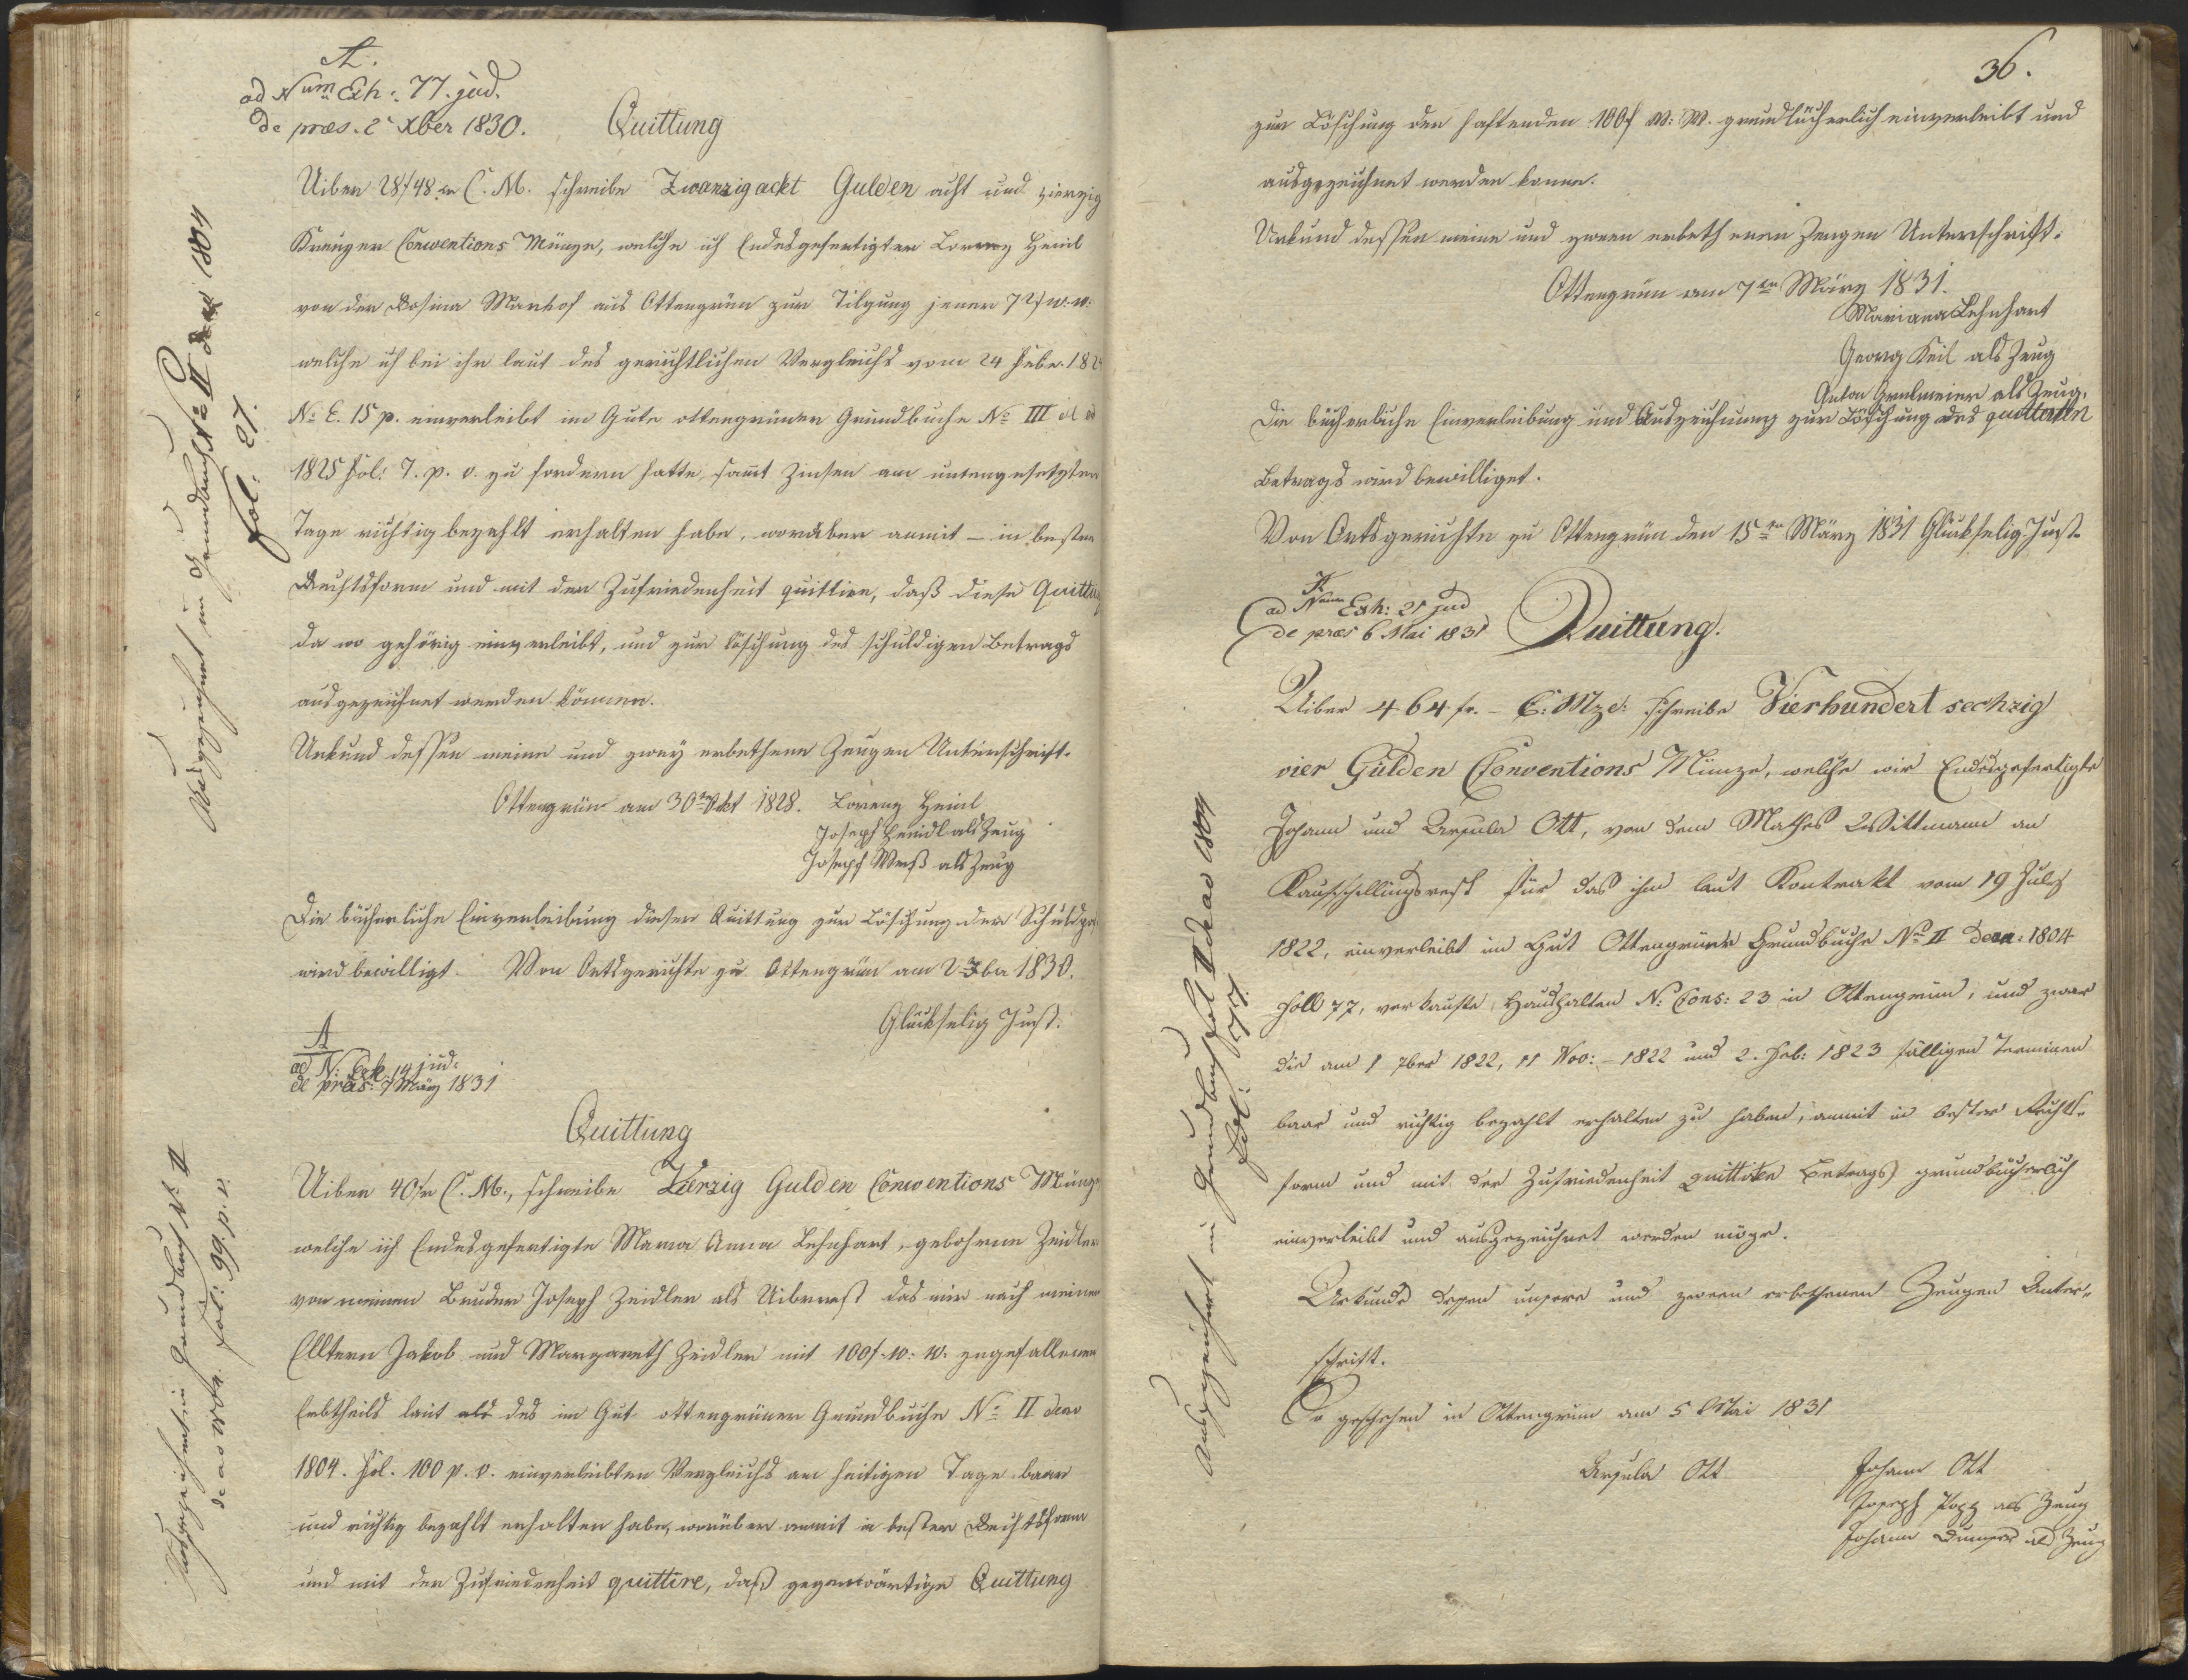 A.
ad Num Exh: 77. jud.
de præs. 2 Xber 1830.
Quittung
Uiber 28f 48 xr C. M. schreibe Zwanzigackt Gulden acht und vierzig
Kreuzer Conventions Münze, welche ich Endesgefertigter Lorenz Heinl
von der Rosina Manhof aus Ottengrün zur Tilgung jener 72f w. w.
welche ich bei ihr laut des gerichtlichen Vergleichs vom 24 Febr. 182
No E. 15 p. einverleibt im Gute ottengrüner Grundbuche No III
1825 Fol: 7. p. v. zu fordern hatte, sammt Zinsen am untengesetzten
Tage richtig bezahlt erhalten habe, worüber anmit – in bester
Rechtsform und mit der Zufriedenheit quittire, daß diese Quittung
da wo gehörig einverleibt, und zur Löschung des schuldigen Betrags
ausgezeichnet werden können.
Urkund dessen meine und zwey erbethene Zeugen Unterschrift.
Ottengrün am 30ten Okt 1828. Lorenz Heinl
Joseph Heinl als Zeug
Joseph Weiß als Zeug
Die bücherliche Einverleibung dieser Quittung zur Löschung der Schuldpo
wird bewilligt. Von Ortsgerichte zu Ottengrün am 2 Xber 1830.
Glückselig Just.
Ausgezeichnet im Grundbuche No II de ao 1804
fol: 27.
A
ad N: Exh. 14 jud:
de præs: 7 März 1831
Quittung
Uiber 40 fr C. M., schreibe Vierzig Gulden Conventions Münze
welche ich Endesgefertigte Maria Anna Lehnhart, gebohrne Zeidler
von meinem Bruder Joseph Zeidler als Uiberrest das mir nach meinen
Elltern Jakob und Margareth Zeidler mit 100f. w: w. zugefallenen
Erbtheils laut als des im Gut ottengrüner Grundbuche No II de ao
1804. Fol. 100 p. v. einverleibten Vergleichs am heitigen Tage baar
und richtig bezahlt erhalten habe, worüber anmit in bester Rechtsform
und mit der Zufriedenheit quittire, daß gegenwärtige Quittung
Ausgezeichnet im Grundbuch No II
de ao 1804. fol: 99. p. v.
36.
zur Löschung der haftenden 100f W: W. grundbücherlich einverleibt und
ausgezeichnet werden könne.
Urkund dessen meine und zween erbethenen Zeugen Unterschrift.
Ottengrün am 7ten März 1831.
Mariana Lehnhart
Georg Keil als Zeug
Anton als Zeug.
Die bücherliche Einverleibung und Auszeichnung zur Löschung des quittirten
Betrags wird bewilliget.
Von Ortsgerichte zu Ottengrün den 15ten März 1831 Glückselig Just.
A
ad Num Exh: 21 jud
de præs 6 Mai 1831
Quittung.
Uiber 464 fr. – C: Mze: schreibe Vierhundert sechzig
vier Gulden Conventions Münze, welche wir Endesgefertigte
Johann und Ursula Ott, von dem Mathes Wittmann an
Kaufschillingsrest für das ihm laut Kontrakt vom 19 July
1822, einverleibt im Gut Ottengrüner Grundbuche No II de ao: 1804
Foll 77, verkaufte, Haushalten N: Cons: 23 in Ottengrün, und zwar
die am 1 7ber 1822, 11 Nov: – 1822 und 2. Feb: 1823 fälligen Terminen
baar und richtig bezahlt erhalten zu haben, anmit in bester Rechts-
form und mit der Zufriedenheit quittiren Betrags grundbücherlich
einverleibt und ausgezeichnet werden möge.
Urkunde dessen unsere und zween erbethenen Zeugen Unter-
schrift.
So geschehen in Ottengrün am 5 Mai 1831
Ursula Ott
Johann Ott
Joseph Popp als Zeug
Johann als Zeug
Ausgezeichnet im Grundbuch Fol II de ao 1804
fol: 77.